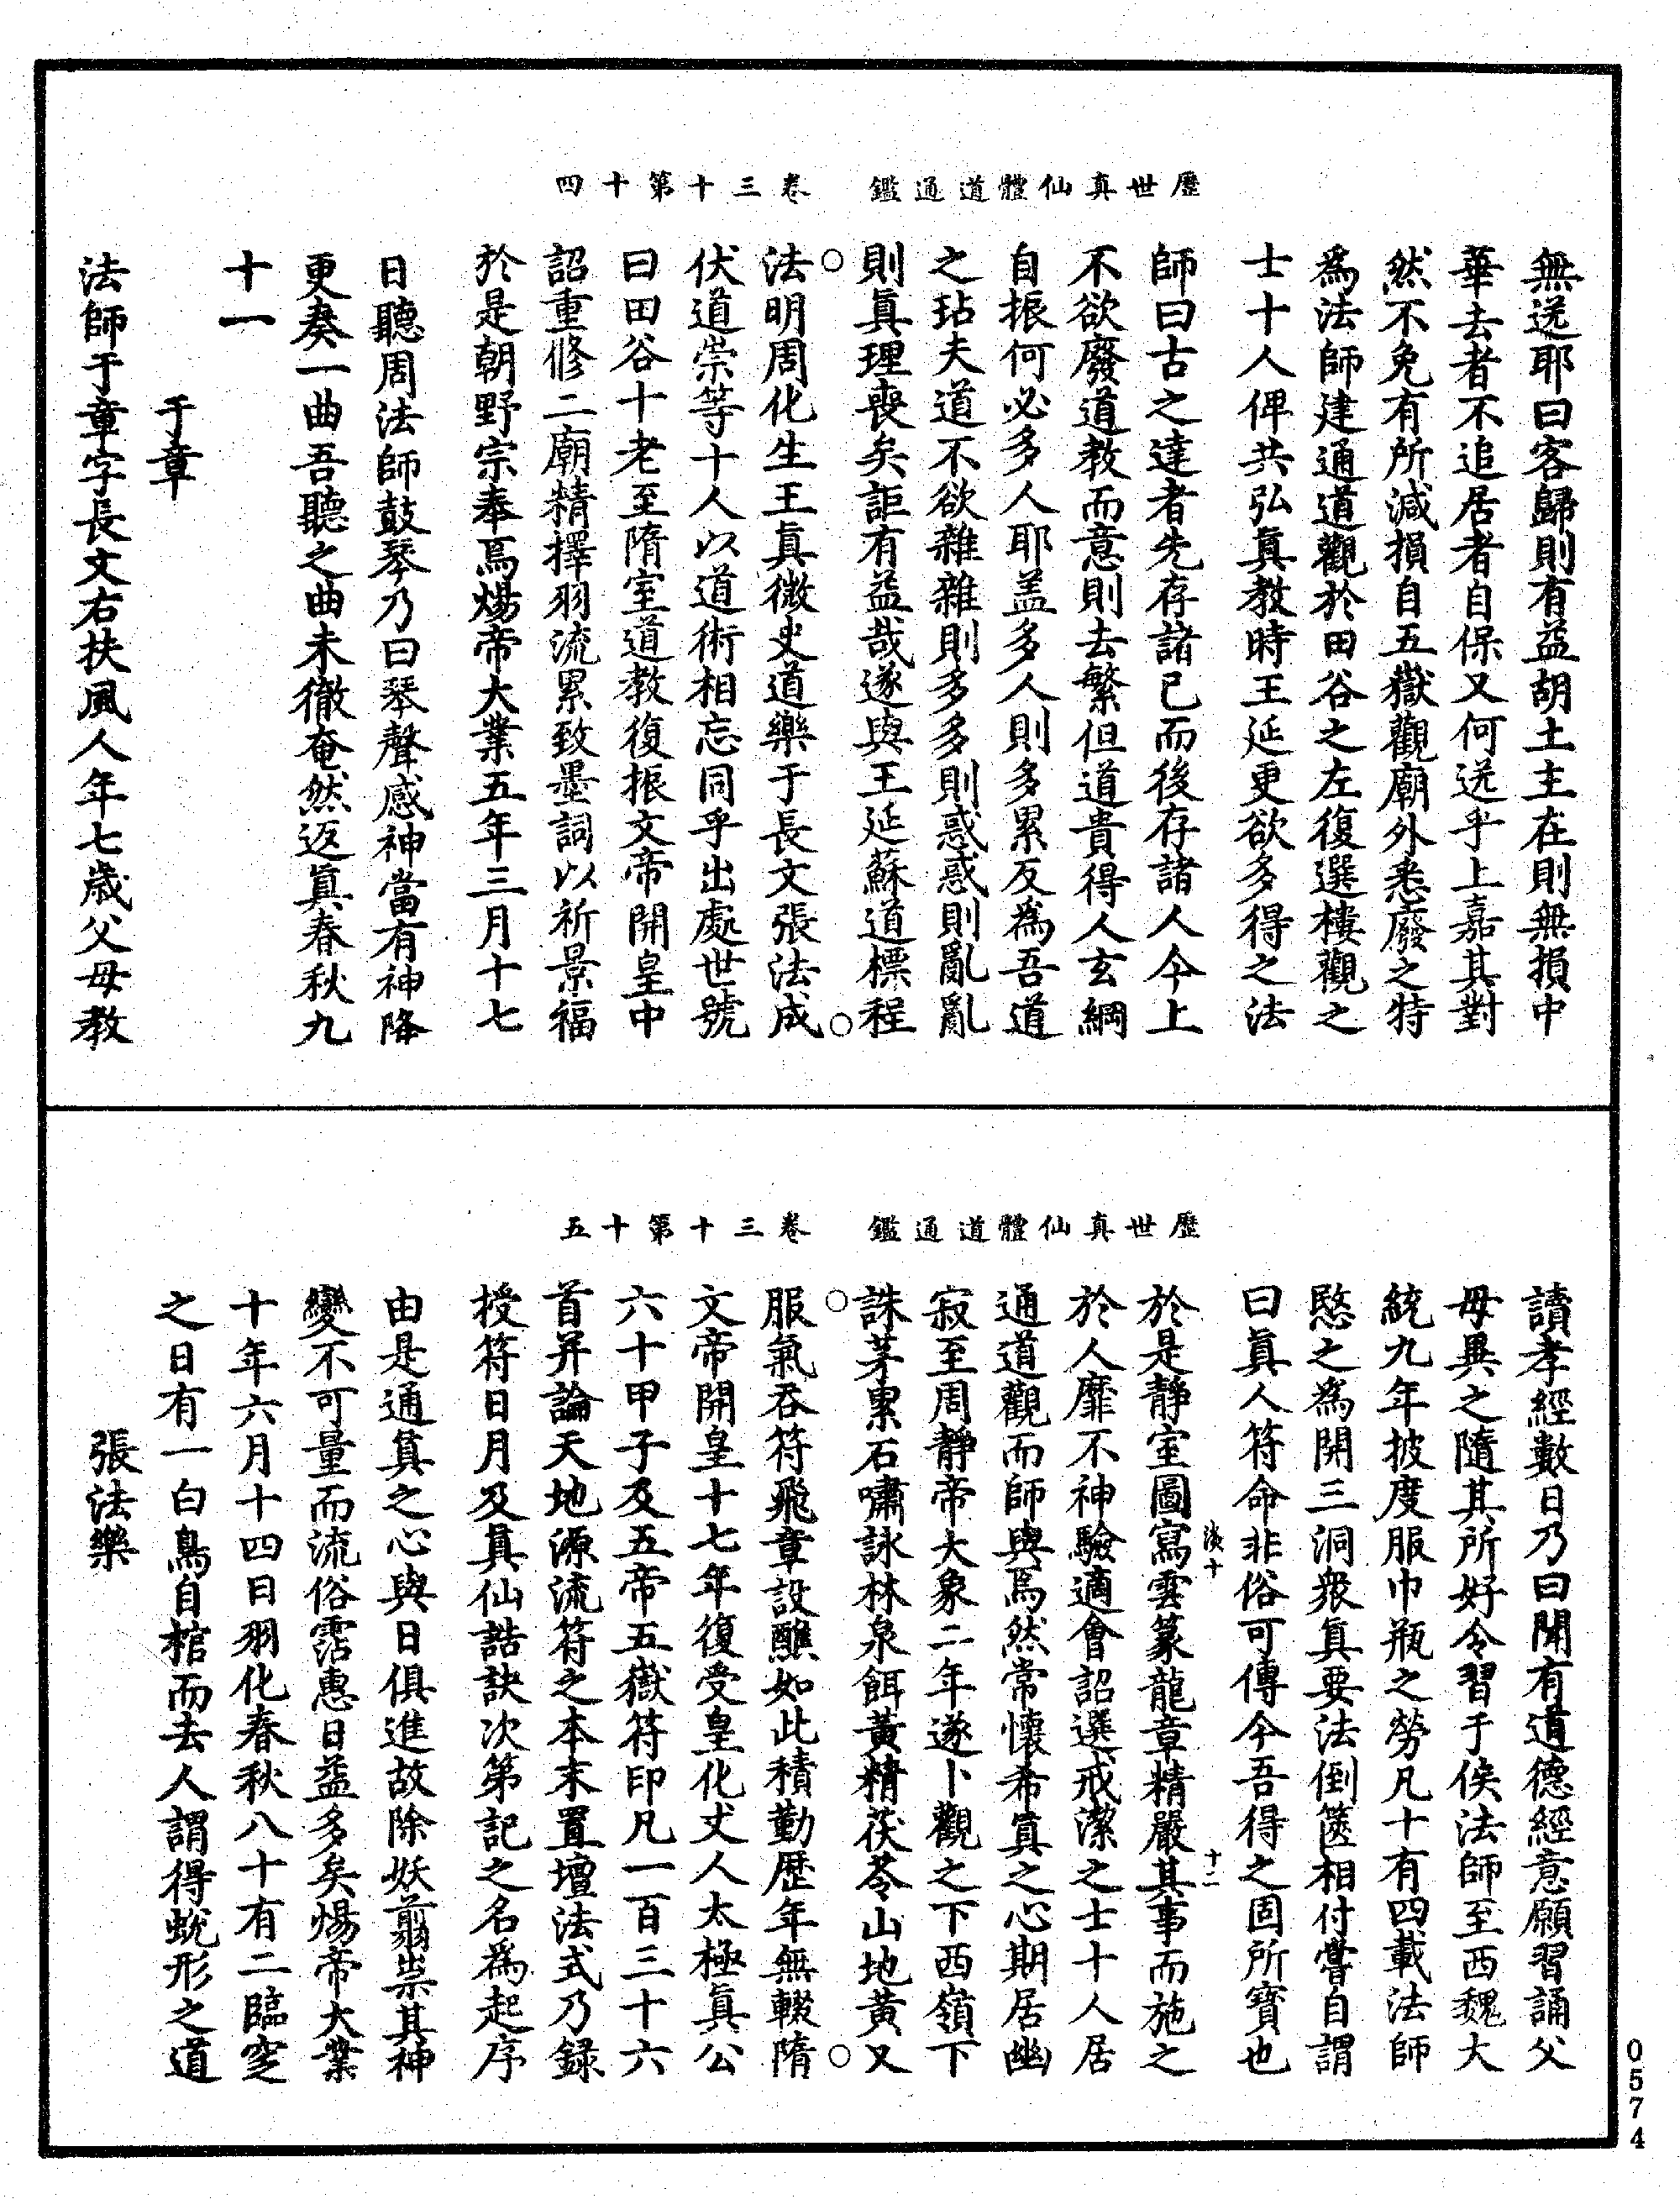 歷世真仙體道通鑑　卷三十第十四
無送耶曰客歸則有益胡土主在則無損中
華去者不追居者自保又何送乎上嘉其對
然不免有所減損自五嶽觀廟外悉廢之特
為法師建通道觀於田谷之左復選樓觀之
士十人俾共弘眞教時王延更欲多得之法
師曰古之達者先存諸己而後存諸人今上
不欲廢道教而意則去繁但道貴得人玄綱
自振何必多人耶盖多人則多累反為吾道
之玷夫道不欲雜雜則多多則惑惑則亂亂
則眞理喪矣詎有益哉遂與王延蘇道標程
法明周化生王眞微史道樂于長文張法成
伏道崇等十人以道術相忘同乎出處世號
曰田谷十老至隋室道教復振文帝開皇中
詔重修二廟精擇羽流累致墨詞以祈景福
於是朝野宗奉焉煬帝大業五年三月十七
日聽周法師鼓琴乃曰琴聲感神當有神降
更奏一曲吾聽之曲未徹奄然返眞春秋九
十一
于章
法師于章字長文右扶風人年七歲父母教
歷世真仙體道通鑑　卷三十第十五
讀孝經數日乃曰聞有道德經意願習誦父
母異之隨其所好令習于侯法師至西魏大
統九年披度服巾瓶之勞凡十有四載法師
愍之為開三洞衆眞要法倒篋相付嘗自謂
曰眞人符命非俗可傳今吾得之固所寶也
於是靜室圖寫雲篆龍章精嚴其事而施之
於人靡不神驗適會詔選戒潔之士十人居
通道觀而師與焉然常懷希眞之心期居幽
寂至周靜帝大象二年遂卜觀之下西嶺下
誅茅累石嘯詠林泉餌黃精茯苓山地黃又
服氣吞符飛章設醮如此積勤歷年無輟隋
文帝開皇十七年復受皇化丈人太極眞公
六十甲子及五帝五嶽符印凡一百三十六
首并論天地源流符之本末置壇法式乃錄
授符日月及眞仙誥訣次第記之名為起序
由是通眞之心與日俱進故除妖翦祟其神
變不可量而流俗霑惠日益多矣煬帝大業
十年六月十四日羽化春秋八十有二臨窆
之日有一白鳥自棺而去人謂得蛻形之道
張法樂
十二
0574